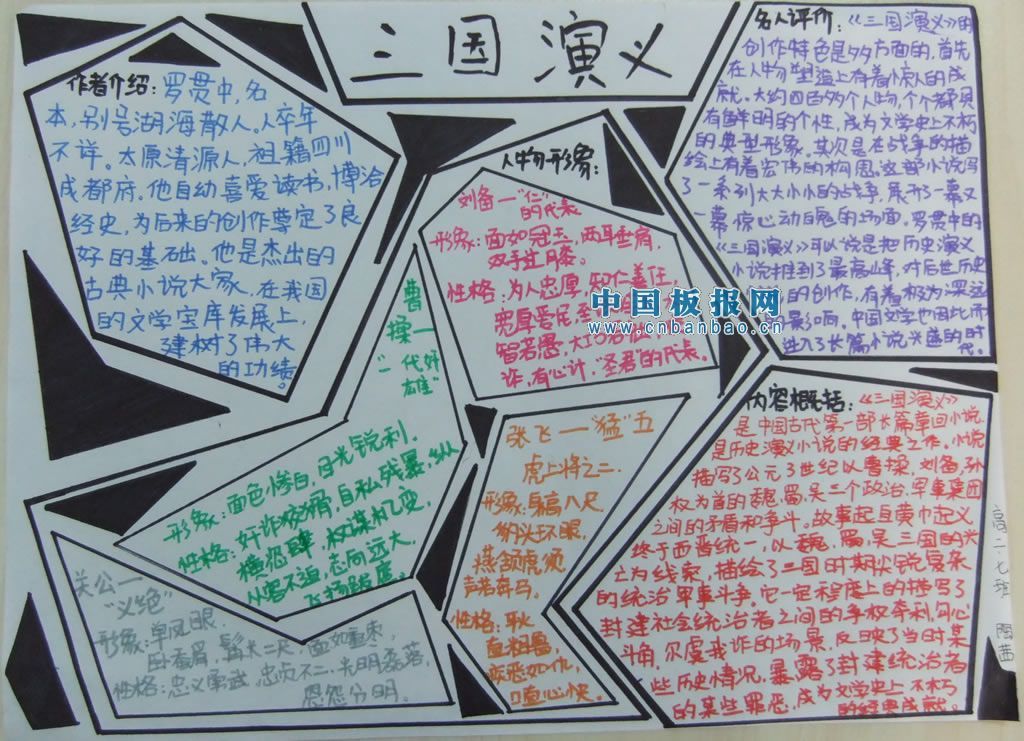 三国演义
作者介绍：罗贯中，名
本，别号湖海散人。人卒年
不详。太原清源人，祖籍四川
成都府。他自幼喜爱读书，博洽
经史，为后来的创作奠定了良
好的基础。他是杰出的
古典小说大家，在我国
的文学宝库发展上，
建树了伟大
的功绩。
人物形象：
刘备—"仁"
的代表
形象：面如冠玉，两耳垂肩，
双手过膝。
性格：为人忠厚，知仁善任，
宽厚爱民，
智若愚，大巧若
诈，有心计，"圣君"的代表。
曹操—
"一代奸
雄"
形象：面色惨白，目光锐利，
性格：奸诈狡猾，自私残暴，纵
横恣肆，权谋机变，
从容不迫，志向远大，
飞扬跋扈
张飞—"猛"五
虎上将之二.
形象：身高八尺
豹头环眼，
燕颔虎须
声若奔马，
性格：
直粗鲁，
疾恶如仇，
口直心快。
关公—
"义绝"
形象：单凤眼，
卧蚕眉，髯长二尺，面如重枣，
性格：忠义勇武，忠贞不二，光明磊落，
恩怨分明。
名人评价：《三国演义》的
创作特色是多方面的，首先
在人物塑造上有着惊人的成
就。大约四百多个人物，个个都具
有鲜明的个性，成为文学史上不朽
的典型形象。其次是在战争的描
绘上有着宏伟的构思。这部小说写
了一系列大大小小的战争，展开了一幕又
一幕惊心动魄的场面。罗贯中的
《三国演义》可以说是把历史演义
小说推到了最高峰，对后世历史
的创作，有着极为深远
影响。中国文学也因此而
进入了长篇小说兴盛的时
代。
内容概括：《三国演义》
是中国古代第一部长篇章回小说，
是历史演义小说的经典之作。小说
描写了公元3世纪以曹操，刘备，孙
权为首的魏、蜀、吴三个政治、军事集团
之间的矛盾和争斗。故事起自黄巾起义
终于西晋统一，以魏，蜀，吴三国的兴
亡为线索，描绘了三国时期尖锐复杂
的统治军事斗争。它一定程度上的描写了
封建社会统治者之间的争权夺利，勾心
斗角，尔虞我诈的场景，反映了当时某
些历史情况，暴露了封建统治者
的某些罪恶，成为文学史上不朽
的经典成就。
高二七班
陶茜
中国板报网
www.cnbanbao.cn